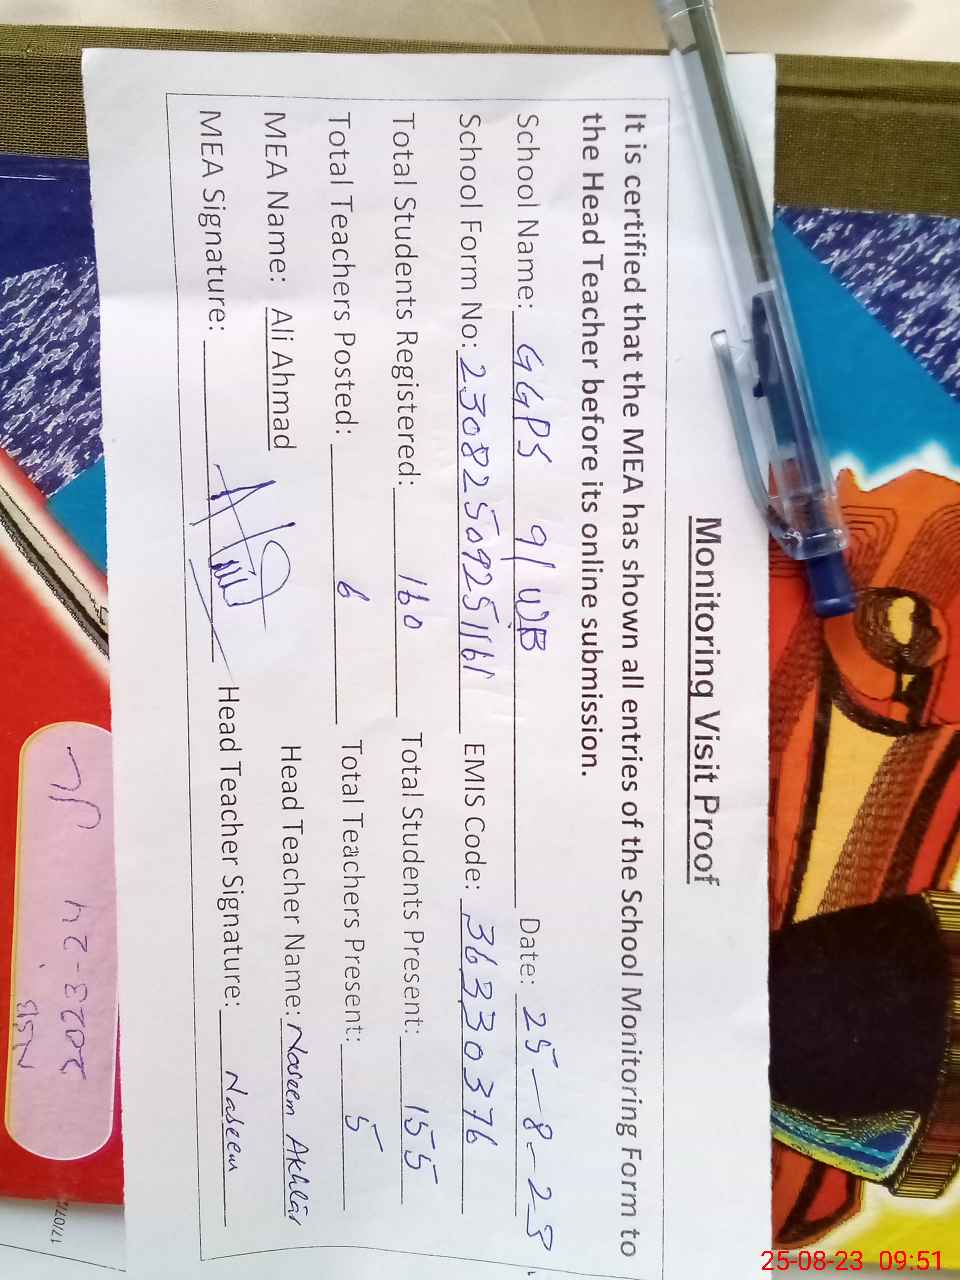 Monitoring Visit Proof
It is certified that the MEA has shown all entries of the School Monitoring Form to
the Head Teacher before its online submission.
School Name: GGPS 91 WB Date: 25-8-23
School Form No: 23082509251161 EMIS Code: 36330376
Total Students Registered: 160 Total Students Present: 155
Total Teachers Posted: 6 Total Teachers Present: 5
MEA Name: Ali Ahmad Head Teacher Name: Naseem Akhtar
MEA Signature: Head Teacher Signature: Naseem
2023-24
NSB
25-08-23 09:51